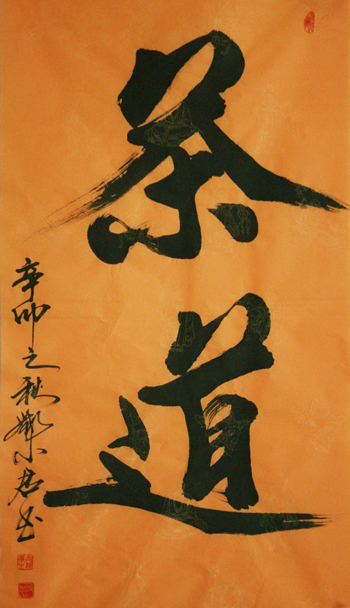 茶道
辛卯之秋樊小君书